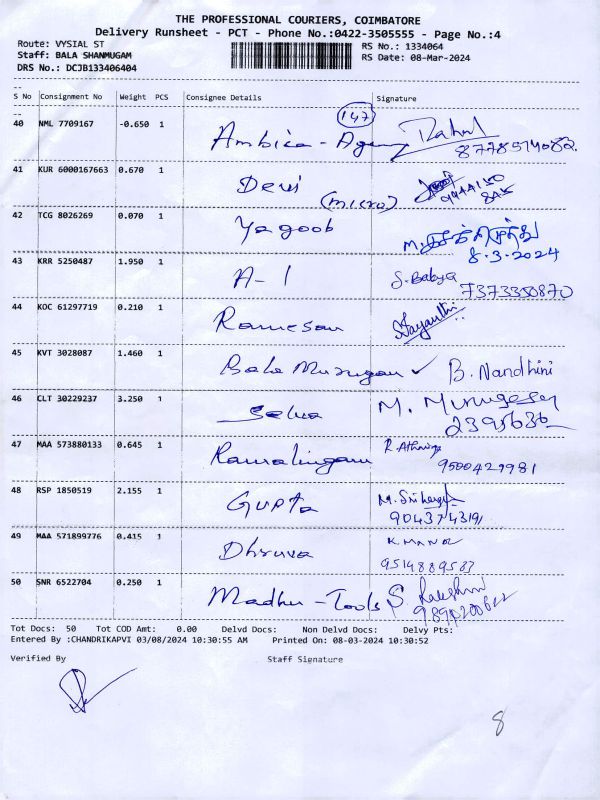 THE PROFESSIONAL COURIERS, COIMBATORE
Delivery Runsheet - PCT - Phone No.:0422-3505555 - Page No.:4
Route: VYSIAL ST RS No.: 1334064
Staff: BALA SHANMUGAM RS Date: 08-Mar-2024
DRS No.: DCJB133406404
S No Consignment No Weight PCS Consignee Details Signature
147
40 NML 7709167 -0.650 1 Ambica - Agency Rahul
41 KUR 6000167663 0.670 1 Devi
(micro)
42 TCG 8026269 0.070 1 Yagoob
8.3.2024
43 KRR 5250487 1.950 1 A-1 S. Babya
7373350870
44 KOC 61297719 0.210 1 Ramesan Jayanthi
45 KVT 3028087 1.460 1 Bala Murugan ✓ B. Nandhini
46 CLT 30229237 3.250 1 Selva M. Murugesan
2395636
47 MAA 573880133 0.645 1 Ramalingam
9500429981
48 RSP 1850519 2.155 1 Gupta
9043743191
49 MAA 571899776 0.415 1 Dhruva K. MANOJ
9514889583
50 SNR 6522704 0.250 1 Madhu - Tools
Tot Docs: 50 Tot COD Amt: 0.00 Delvd Docs: Non Delvd Docs: Delvy Pts:
Entered By :CHANDRIKAPVI 03/08/2024 10:30:55 AM Printed On: 08-03-2024 10:30:52
Verified By Staff Signature
8